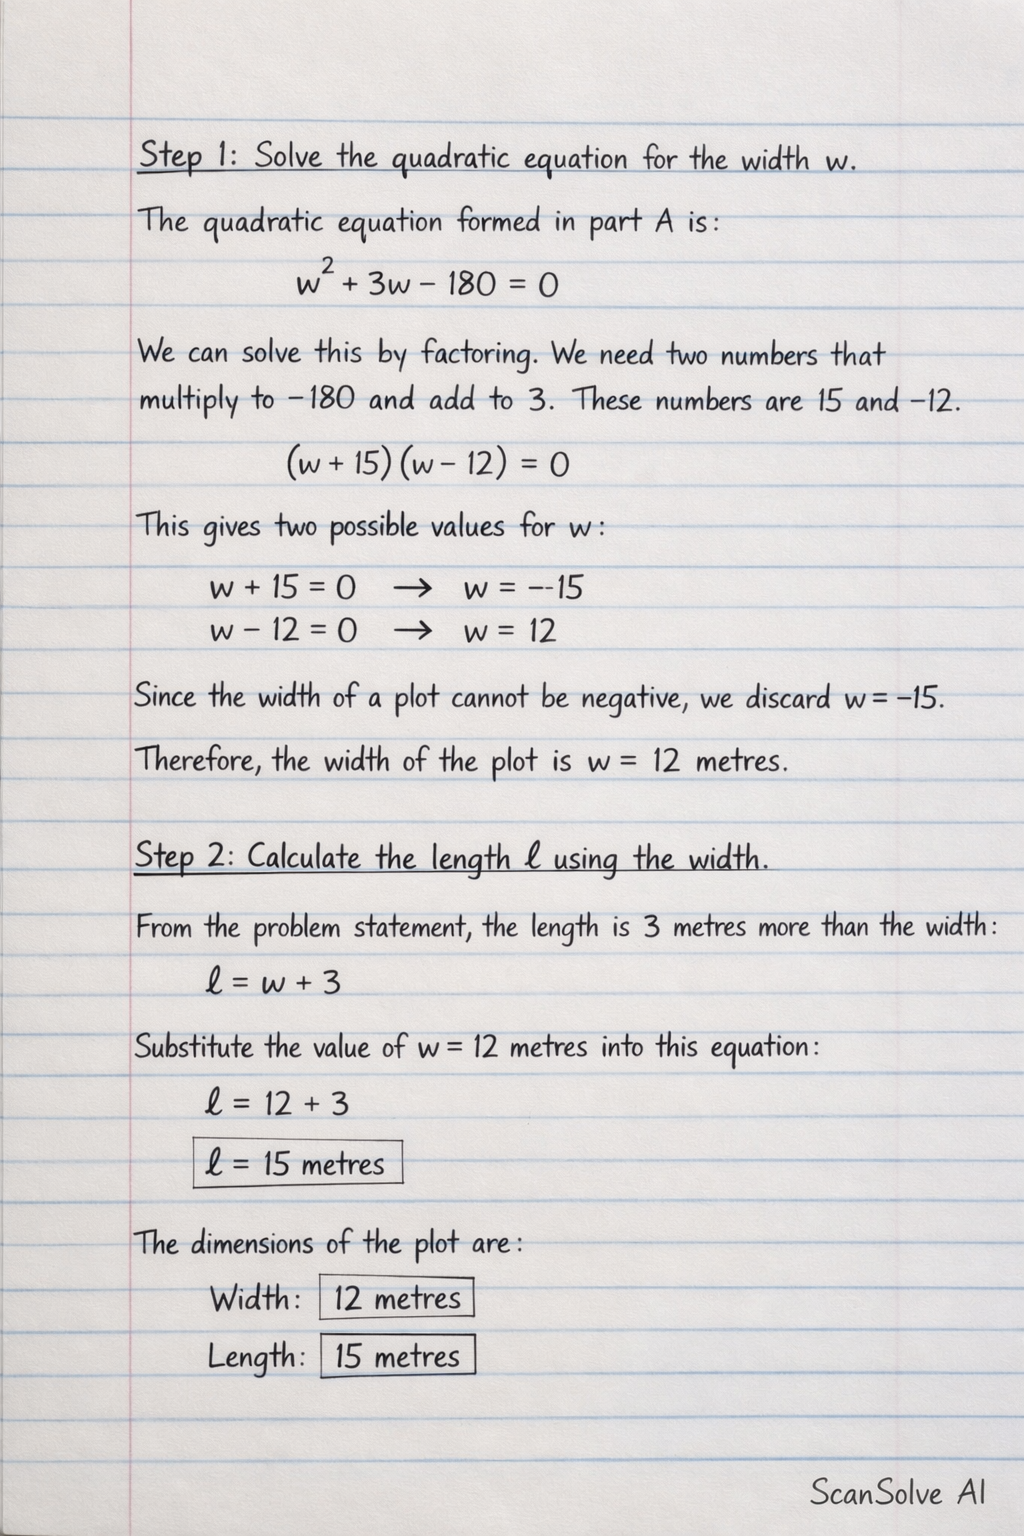 Step 1: Solve the quadratic equation for the width w.
The quadratic equation formed in part A is:
w² + 3w − 180 = 0
We can solve this by factoring. We need two numbers that
multiply to −180 and add to 3. These numbers are 15 and −12.
(w + 15)(w − 12) = 0
This gives two possible values for w:
w + 15 = 0 → w = −-15
w − 12 = 0 → w = 12
Since the width of a plot cannot be negative, we discard w = −15.
Therefore, the width of the plot is w = 12 metres.
Step 2: Calculate the length ℓ using the width.
From the problem statement, the length is 3 metres more than the width:
ℓ = w + 3
Substitute the value of w = 12 metres into this equation:
ℓ = 12 + 3
ℓ = 15 metres
The dimensions of the plot are:
Width: 12 metres
Length: 15 metres
ScanSolve AI